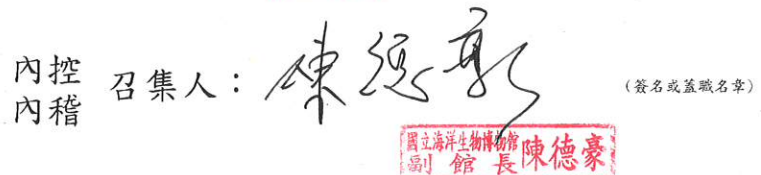 內控
內稽
召集人：陳德豪
(簽名或蓋職名章)
國立海洋生物博物館
副館長陳德豪